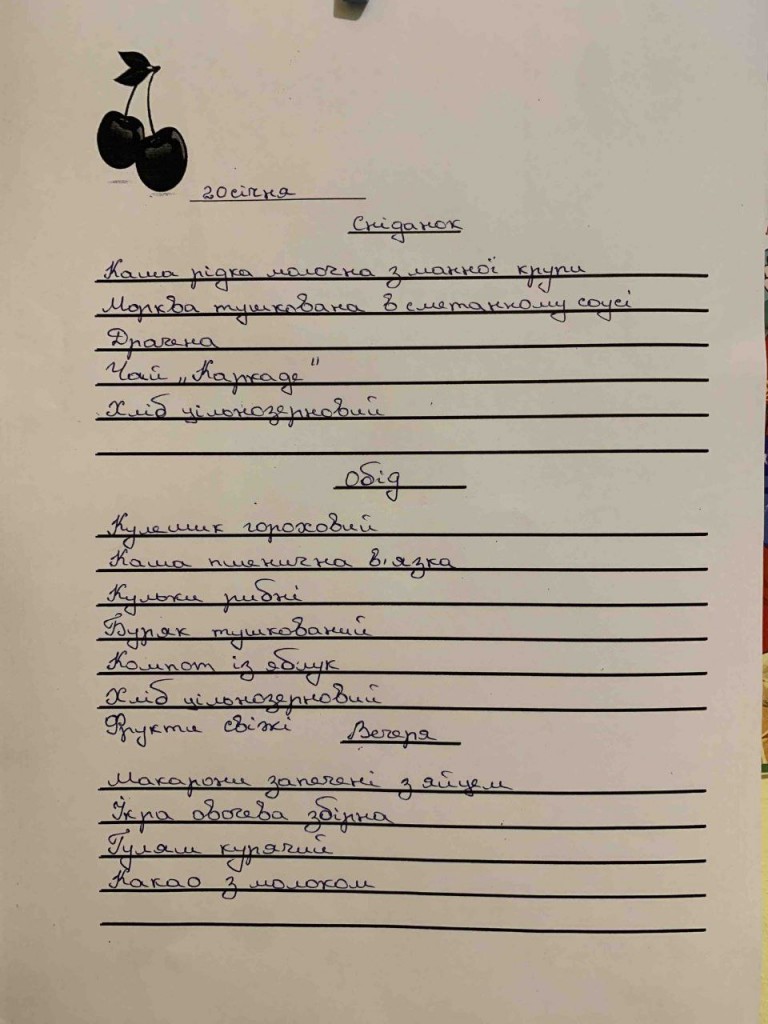 20 січня
Сніданок
Каша рідка молочна з манної крупи
Морква тушкована в сметанному соусі
Драчена
Чай „Каркаде"
Хліб цільнозерновий
Обід
Кулешик гороховий
Каша пшенична в'язка
Кульки рибні
Буряк тушкований
Компот із яблук
Хліб цільнозерновий
Фрукти свіжі
Вечеря
Макарони запечені з яйцем
Ікра овочева збірна
Гуляш курячий
Какао з молоком